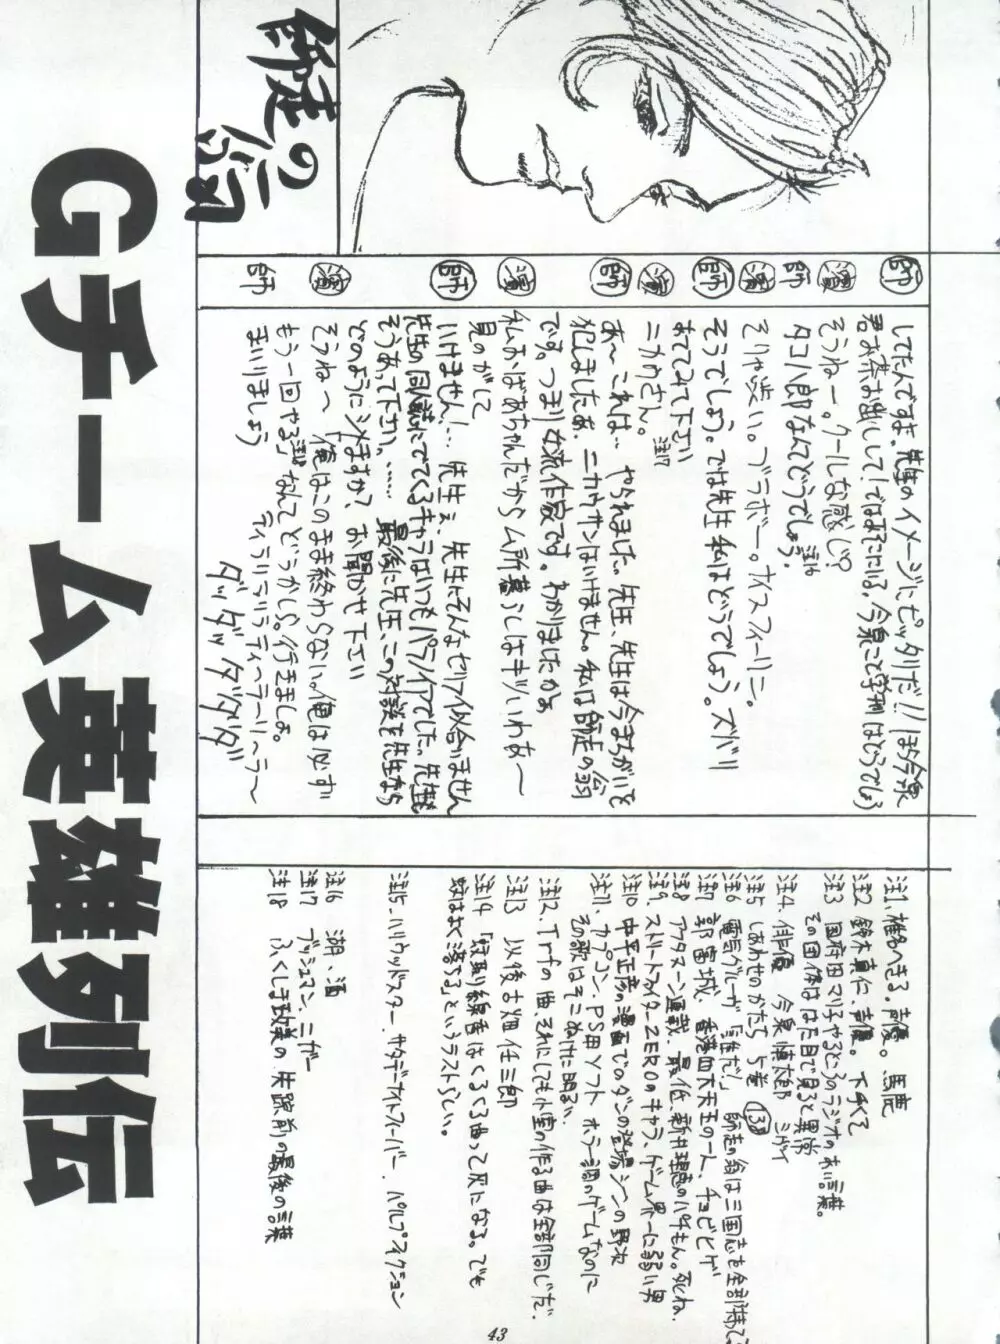 師 してたんですよ、先生のイメージにピッタリだ!! ほら今泉
君お茶お出しして!では
今泉こと学州はどうでしょう
そうねー。クールな感じ?
師 タコ八郎なんてどうでしょう。注16
そりゃ渋い。ブラボー。ナイスフィーリン。
師 そうでしょう。では先生私はどうでしょう。ズバリ
おててみて下さい
ニカウさん。注17
師 あ〜これは‥やられました。先生、先生は今まちがいを
犯しましたよ。ニカウサンはいけません。私は師走の翁
です。つまり女流作家です。わかりましたかな
私おばあちゃんだからム所暮らしはキツイわあ〜
見のがして
師 いけません!…先生え、先生にそんなセリフ似合いません
先生の同人誌にでてくるキャラはいつもパワフルでした。先生も
そうあって下さい。……最後に先生、この対談を先生なら
どのようにシメますか?お聞かせ下さい
そうね〜「俺はこのまま終わらない、俺は必ず
もう一回やる」注18なんてどうかしら。行きましょ。
師 まいりましょう
ダッダッダダダダ
注1. 椎名へきる。声優。馬鹿
注2 鈴木真仁、声優。下手くて
注3 国府田マリ子やるところのラジオの木信葉。
その団体ははた目で見ると異常
注4. 俳優 今泉慎太郎
注5 しあわせのかたち 5巻
注6 電気グルーヴ「誰だ!」師走の翁は三国志を全部
注7 郭富城、香港四大天王の一人、チョビヒゲ
注8 アフタヌーン連載、最低、新井理恵のパチもん。死ね。
注9. ストリートファイターZEROのキャラ、ゲーム界一に弱い男
注10 中平正彦の漫画でのダンの登場シーンの野次
注11、カプコン、PS用ソフト ホラー調のゲームなのに
その歌はそこぬけに明るい。
注12. Trfの曲、それにしても小室の作る曲は全部同じだ。
注13 以後古畑任三郎
注14 「蚊取り線香はくるくる曲って灰になる。でも
蚊はよく落ちる」というラストらしい。
注15. ハリウッドスター、サタデーナイトフィーバー、パルプフィクション
注16 湖、酒
注17 ブッシュマン、ニガー
注18 ふくしま政美の失踪前の最後の言葉
師走の翁
Gチーム英雄列伝
43